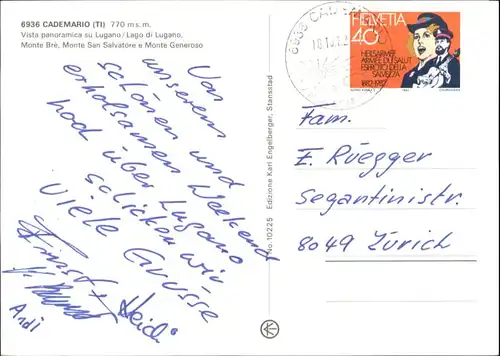 6936 CADEMARIO (TI) 770 m s.m.
Vista panoramica su Lugano / Lago di Lugano,
Monte Brè, Monte San Salvatore e Monte Generoso
Von
unserem
schönen und
erholsamen Weekend
hoch über Lugano
schicken wir
viele Grüsse
Ernst + Heidi
Andi
No. 10225 Edizione Karl Engelberger, Stansstad
HELVETIA
40
HEILSARMEE
ARMEE DU SALUT
ESERCITO DELLA
SALVEZZA
1882-1982
Fam.
E. Rüegger
Segantinistr.
8049 Zürich